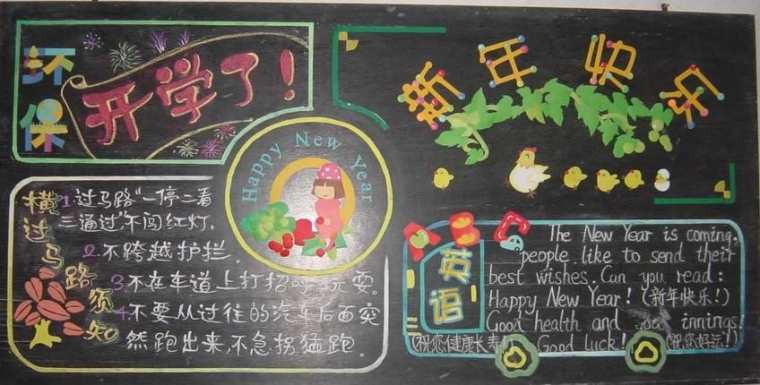 环保
开学了!
新年快乐
Happy New Year
横过马路须知
1.过马路"一停二看
三通过"不闯红灯.
2.不跨越护拦.
3.不在车道上打招呼玩耍。
4.不要从过往的汽车后面突
然跑出来,不急拐猛跑.
英语
The New Year is coming,
people like to send their
best wishes. Can you read:
Happy New Year! (新年快乐!)
Good health and innings!
(祝您健康长寿) Good luck! (祝您好运!)